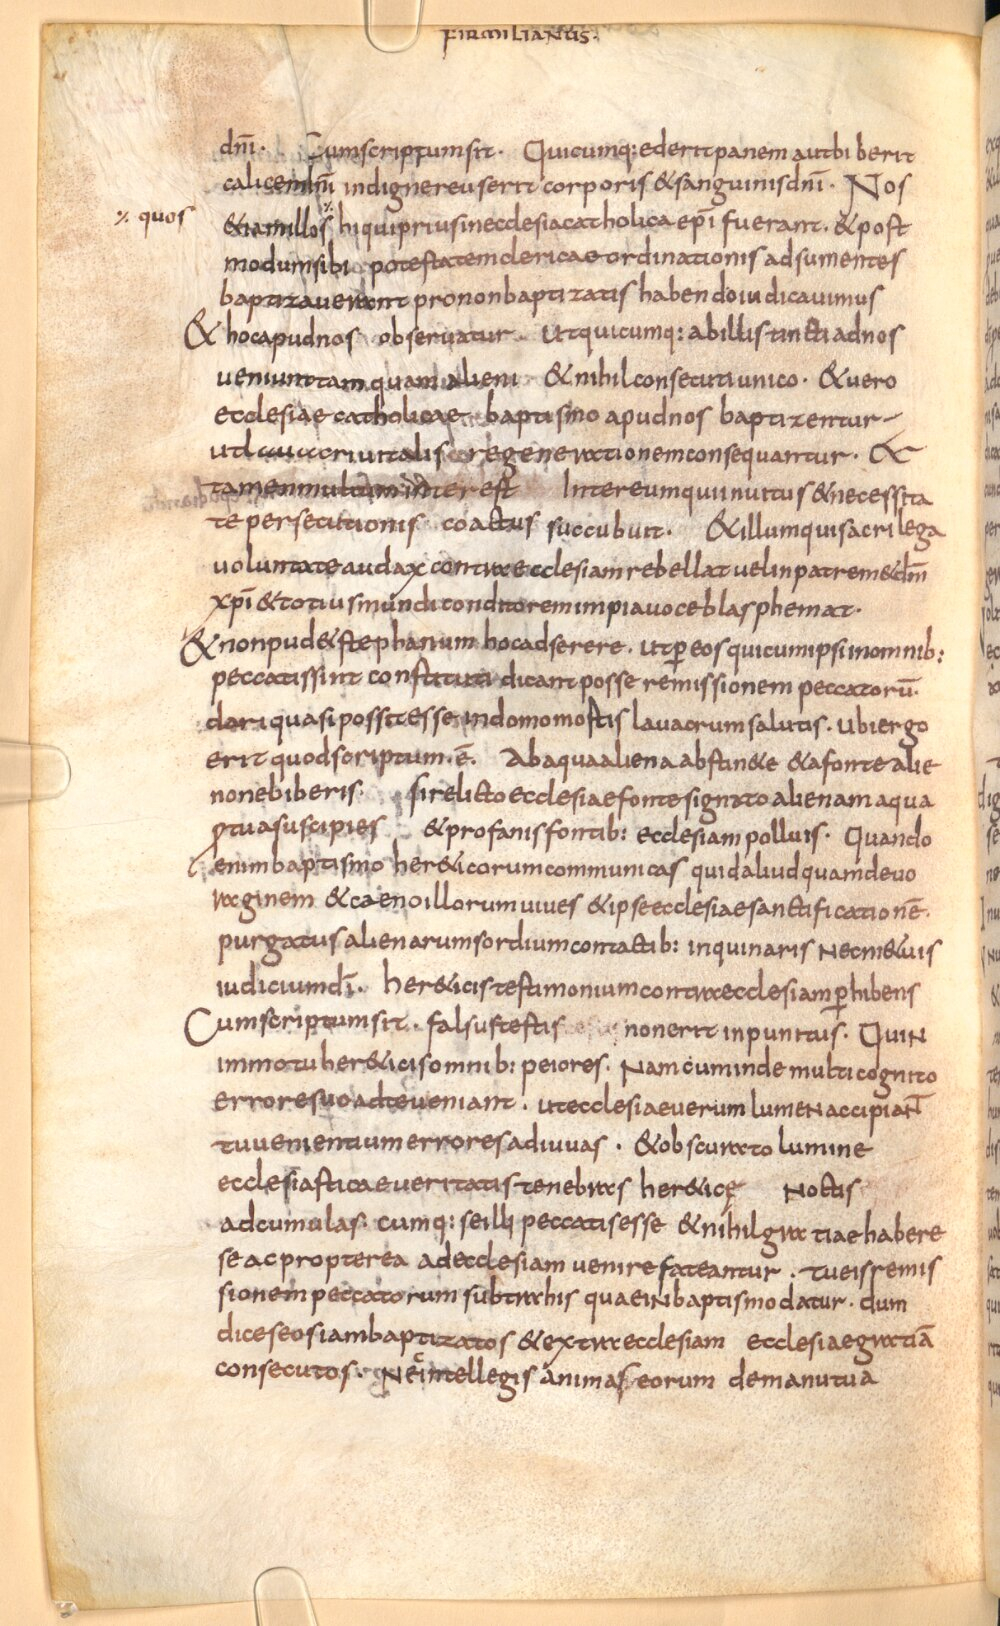 FIRMILIANUS.
dn̄i. Cum scriptum sit. Quicumq: ederit panem aut biberit
calicem dn̄i indigne reus erit corporis & sanguinis dn̄i. Nos
⁒ quos
& iam illos ⁒ hi qui prius in ecclesia catholica ep̄i fuerant. & post
modum sibi potestatem clericae ordinationis adsumentes
baptizauerunt pro non baptizatis habendo iudicauimus
& hoc apud nos obseruatur. ut quicumq: ab illis tincti ad nos
ueniunt tam quam alieni & nihil consecuti unico. & uero
ecclesiae catholicae baptismo apud nos baptizentur
regenerationem consequantur. &
tamen multum interest Inter eum qui inuitus & necessita
te persecutionis coactus succubuit. & illum qui sacrilega
uoluntate audax contra ecclesiam rebellat uel in patrem & dm̄
xp̄i & totius mundi conditorem impia uoce blasphemat.
& non pud& stephanum hoc adserere. ut p̄ eos qui cum ipsi in omnib:
peccatis sint constituti dicant posse remissionem peccatorū.
dari quasi possit esse in domo mortis lauacrum salutis. ubi ergo
erit quod scriptum .ē. Ab aqua aliena abstin&e & a fonte alie
no ne biberis. si relicto ecclesiae fonte signato alienam aqua
suscipies & profanis fontib: ecclesiam polluis. Quando
enim baptismo her&icorum communicas quid aliud quam de uo
raginem & caeno illorum uiues & ipse ecclesiae sanctificationē.
purgatus alienarum sordium contactib: inquinaris Nec m&uis
iudicium dī. her&icis testimonium contra ecclesiam p̄hibens
Cum scriptum sit. falsus testis non erit inpunitus. Quin
immo tu her&icis omnib: peiores. Nam cum inde multi cognito
errore suo ad te ueniant. ut ecclesiae uerum lumen accipiant
tu uenientium errores adiuuas. & obscurato lumine
ecclesiasticae ueritatis tenebras her&icę Noctis
adcumulas. cumq: se illi peccatis esse & nihil gratiae habere
se ac propterea ad ecclesiam uenire fateantur. tu eis remis
sionem peccatorum subtrahis quae in baptismo datur. dum
dices eos iam baptizatos & extra ecclesiam ecclesiae gratiā
consecutos. Nec intellegis animas eorum de manu tua